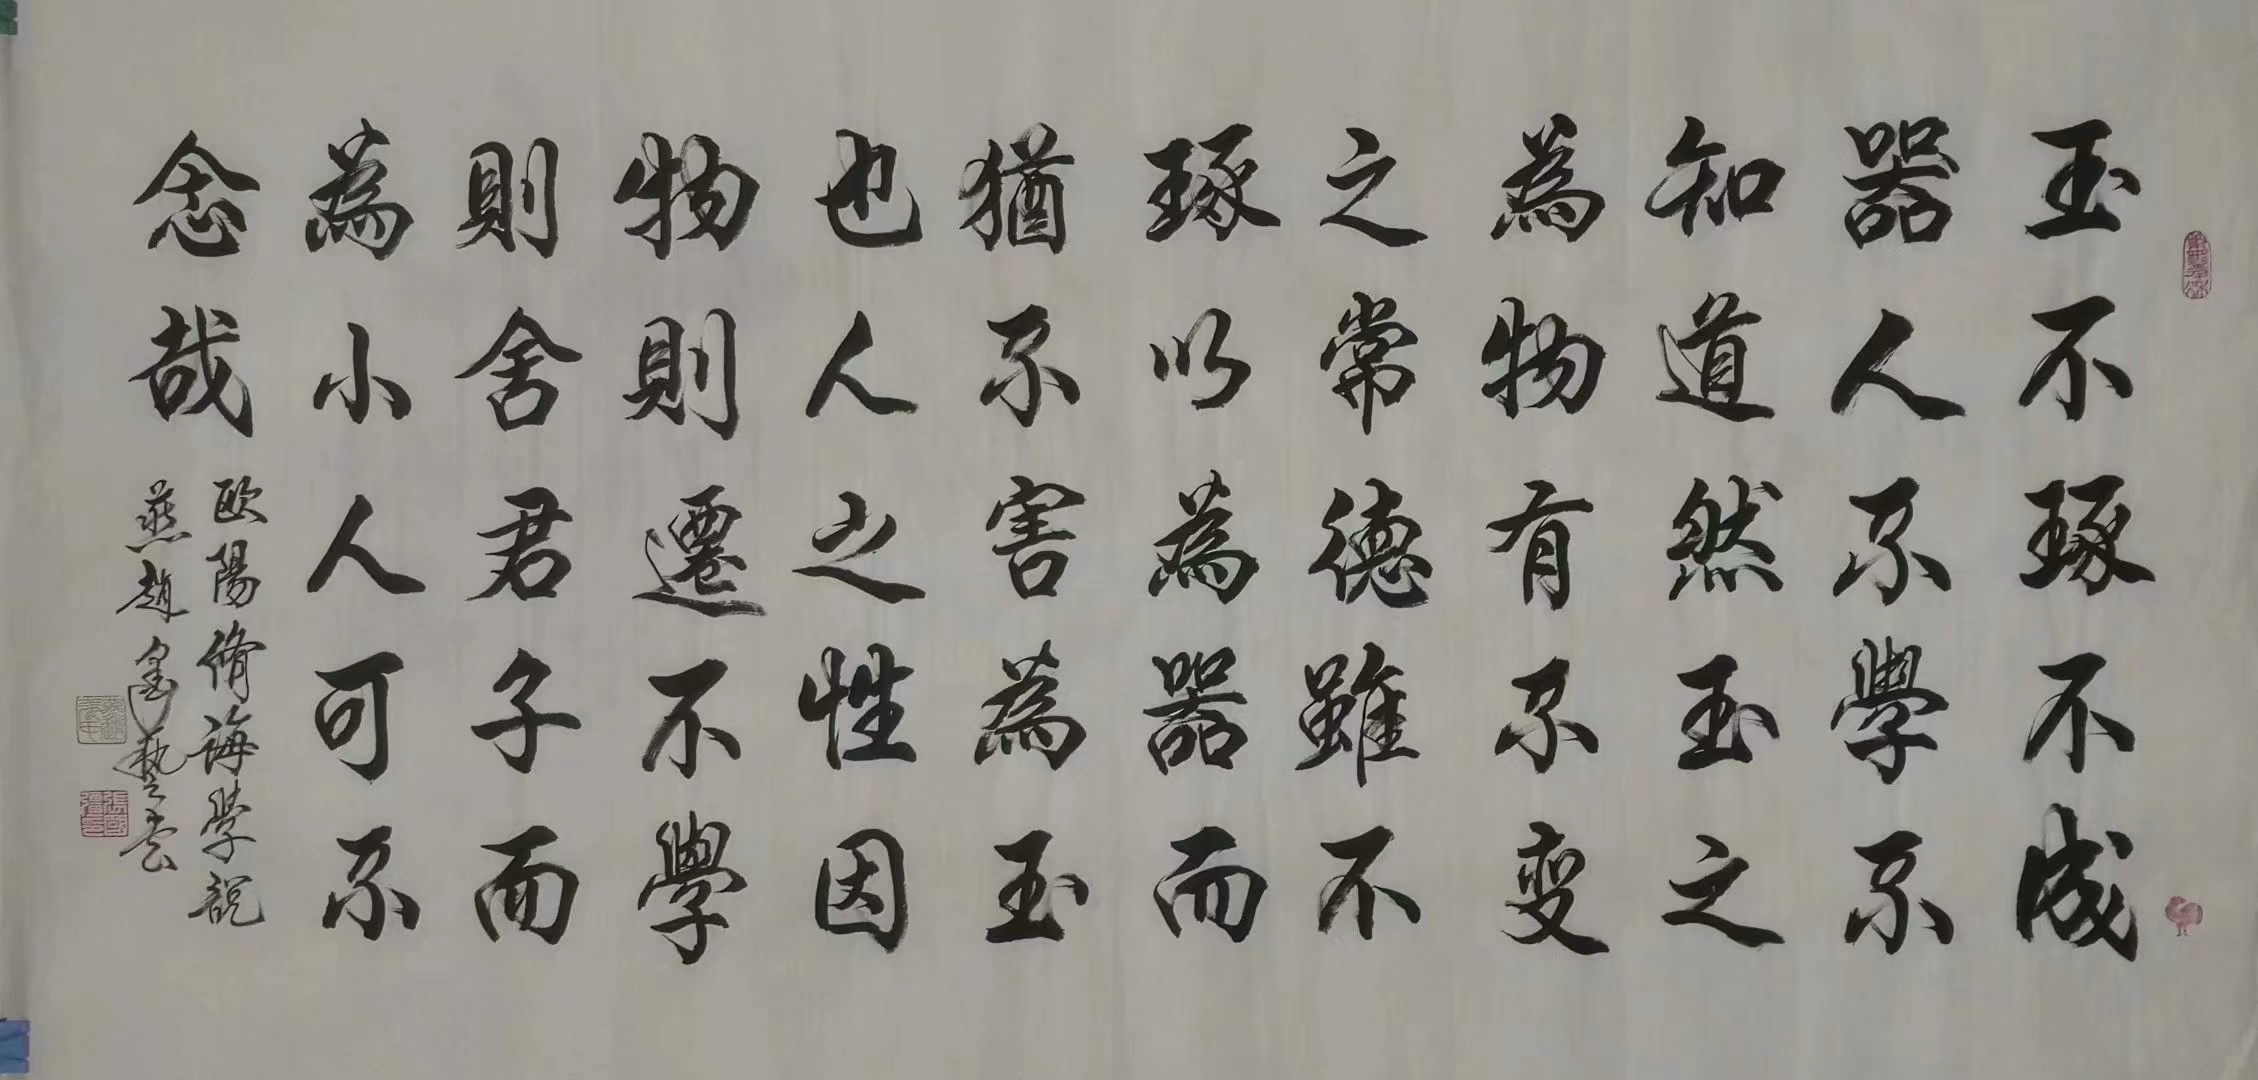 玉不琢不成
器人不學不
知道然玉之
為物有不变
之常德雖不
琢以為器而
猶不害為玉
也人之性因
物則遷不學
則舍君子而
為小人可不
念哉
歐陽脩誨學說
燕趙